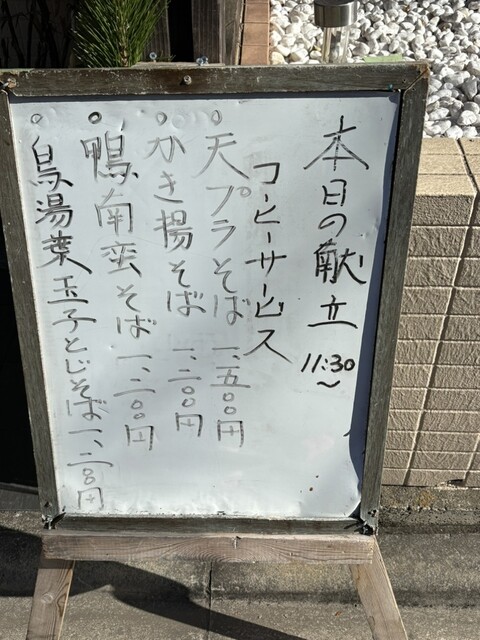 本日の献立 11:30~
コーヒーサービス
○天プラそば 一、五〇〇円
○かき揚そば 一、二〇〇円
○鴨南蛮そば 一、二〇〇円
○鳥湯葉玉子とじそば 一、二〇〇円